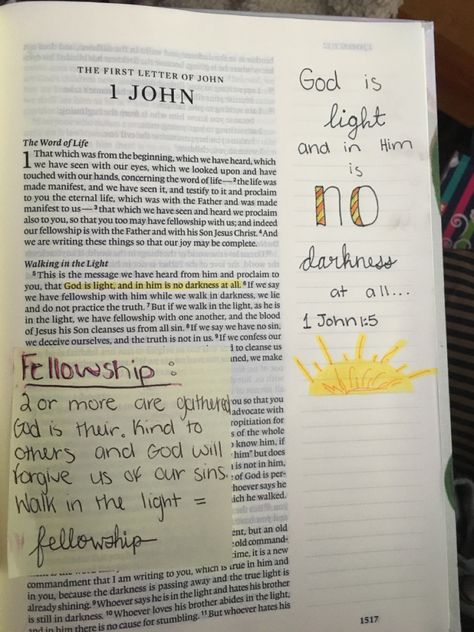 THE FIRST LETTER OF JOHN
1 JOHN
The Word of Life
1 That which was from the beginning, which we have heard, which
we have seen with our eyes, which we looked upon and have
touched with our hands, concerning the word of life—2 the life was
made manifest, and we have seen it, and testify to it and proclaim
to you the eternal life, which was with the Father and was made
manifest to us—3 that which we have seen and heard we proclaim
also to you, so that you too may have fellowship with us; and indeed
our fellowship is with the Father and with his Son Jesus Christ. 4 And
we are writing these things so that our joy may be complete.
Walking in the Light
5 This is the message we have heard from him and proclaim to
you, that God is light, and in him is no darkness at all. 6 If we say
we have fellowship with him while we walk in darkness, we lie
and do not practice the truth. 7 But if we walk in the light, as he is
in the light, we have fellowship with one another, and the blood
of Jesus his Son cleanses us from all sin. 8 If we say we have no sin,
we deceive ourselves, and the truth is not in us. 9 If we confess our
d to cleanse us
ned, we make
ou so that you
advocate with
ropitiation for
s of the whole
know him, if
him" but does
is not in him,
e of God is per-
hoever says he
ich he walked.
ent, but an old
old command-
time, it is a new
commandment that I am writing to you, which is true in him and
in you, because the darkness is passing away and the true light is
already shining. 9 Whoever says he is in the light and hates his brother
is still in darkness. 10 Whoever loves his brother abides in the light,
and in him there is no cause for stumbling. 11 But whoever hates his
Fellowship:
2 or more are gathered
God is their. Kind to
others and God will
forgive us of our sins.
Walk in the light =
fellowship
God is
light
and in Him
is
NO
darkness
at all...
1 John 1:5
1517